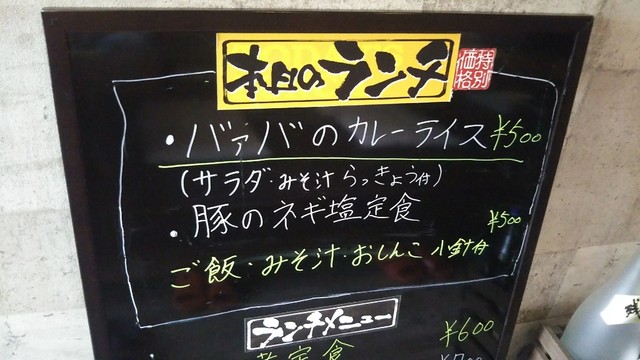 本日のランチ 特別価格
・バァバのカレーライス ¥500
(サラダ・みそ汁 らっきょう付)
・豚のネギ塩定食 ¥500
ご飯・みそ汁・おしんこ 小鉢付
ランチメニュー
¥600
定食